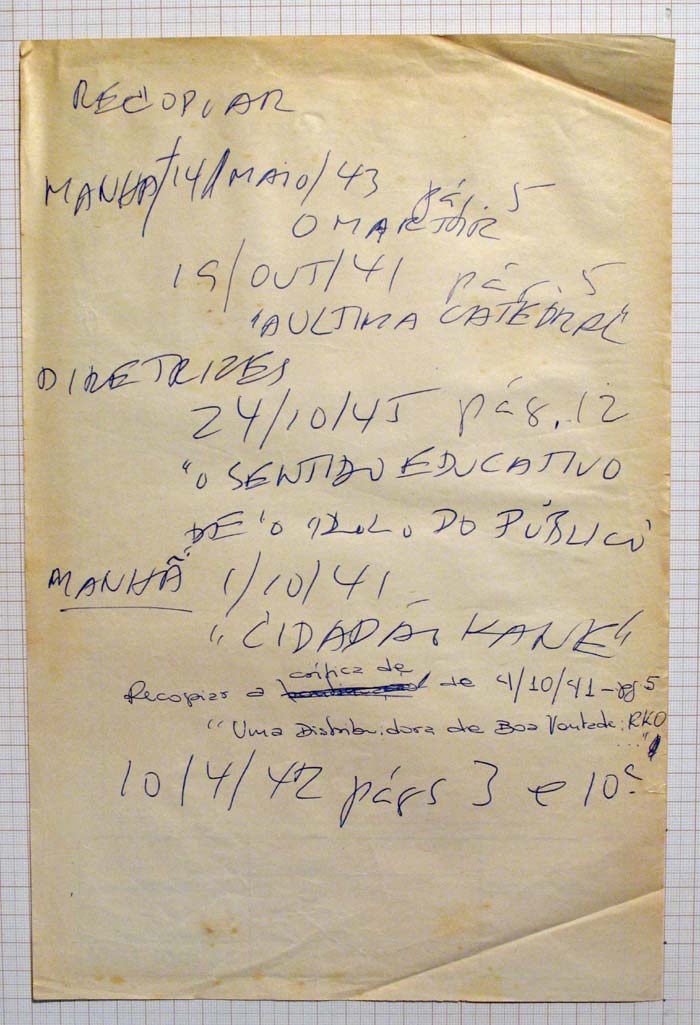 RECOPIAR
MANHÃ/14/MAIO/43 pág. 5
O MARTIR
19/OUT/41 pág. 5
"A ULTIMA CATEDRAL"
DIRETRIZES
24/10/45 pág. 12
"O SENTIDO EDUCATIVO
DE "O IDOLO DO PÚBLICO"
MANHÃ 1/10/41
"CIDADÃO KANE"
crítica de
Recopiar a de 4/10/41 - pg 5
"Uma Distribuidora de Boa Vontade: RKO
..."
10/4/42 págs 3 e 10?